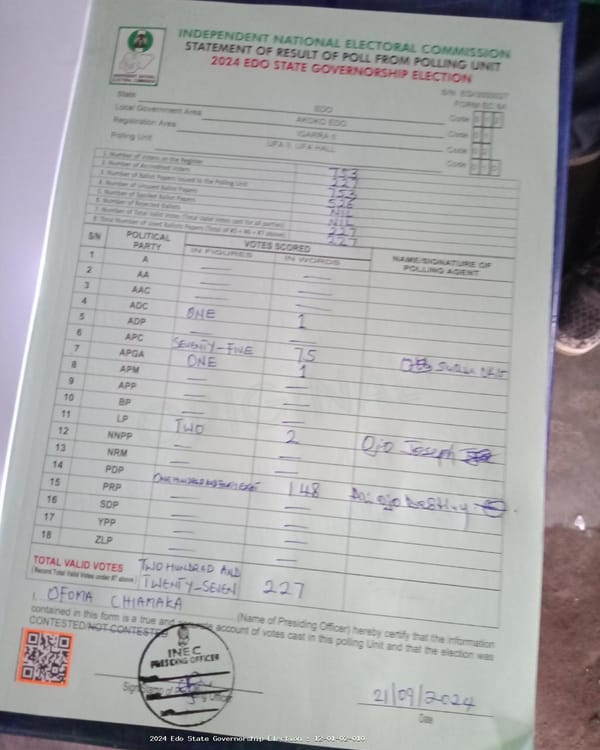 INDEPENDENT NATIONAL ELECTORAL COMMISSION
STATEMENT OF RESULT OF POLL FROM POLLING UNIT
2024 EDO STATE GOVERNORSHIP ELECTION
FORM EC 8A
State EDO Code
Local Government Area AKOKO EDO Code
Registration Area IGARRA II Code
Polling Unit UFA II, UFA HALL Code
1. Number of Voters on the Register 753
2. Number of Accredited Voters 227
3. Number of Ballot Papers Issued to the Polling Unit 753
4. Number of Unused Ballot Papers 526
5. Number of Spoiled Ballot Papers NIL
6. Number of Rejected Ballots NIL
7. Number of Total Valid Votes (Total Valid Votes cast for all parties) 227
8. Total Number of Used Ballot Papers (Total of #5 + #6 + #7 above) 227
S/N POLITICAL PARTY VOTES SCORED NAME/SIGNATURE OF POLLING AGENT
IN FIGURES IN WORDS
1 A — —
2 AA — —
3 AAC — —
4 ADC ONE 1
5 ADP — —
6 APC SEVENTY-FIVE 75
7 APGA ONE 1
8 APM — —
9 APP — —
10 BP — —
11 LP TWO 2 Ojo Joseph
12 NNPP — —
13 NRM — —
14 PDP 148
15 PRP — —
16 SDP — —
17 YPP — —
18 ZLP — —
TOTAL VALID VOTES TWO HUNDRED AND
(Record Total Valid Votes under #7 above) TWENTY-SEVEN 227
I, OFOMA CHIAMAKA (Name of Presiding Officer) hereby certify that the information
contained in this form is a true and account of votes cast in this polling Unit and that the election was
CONTESTED/NOT CONTESTED
INEC
PRESIDING OFFICER
21/09/2024
Date
2024 Edo State Governorship Election : 12-01-02-010